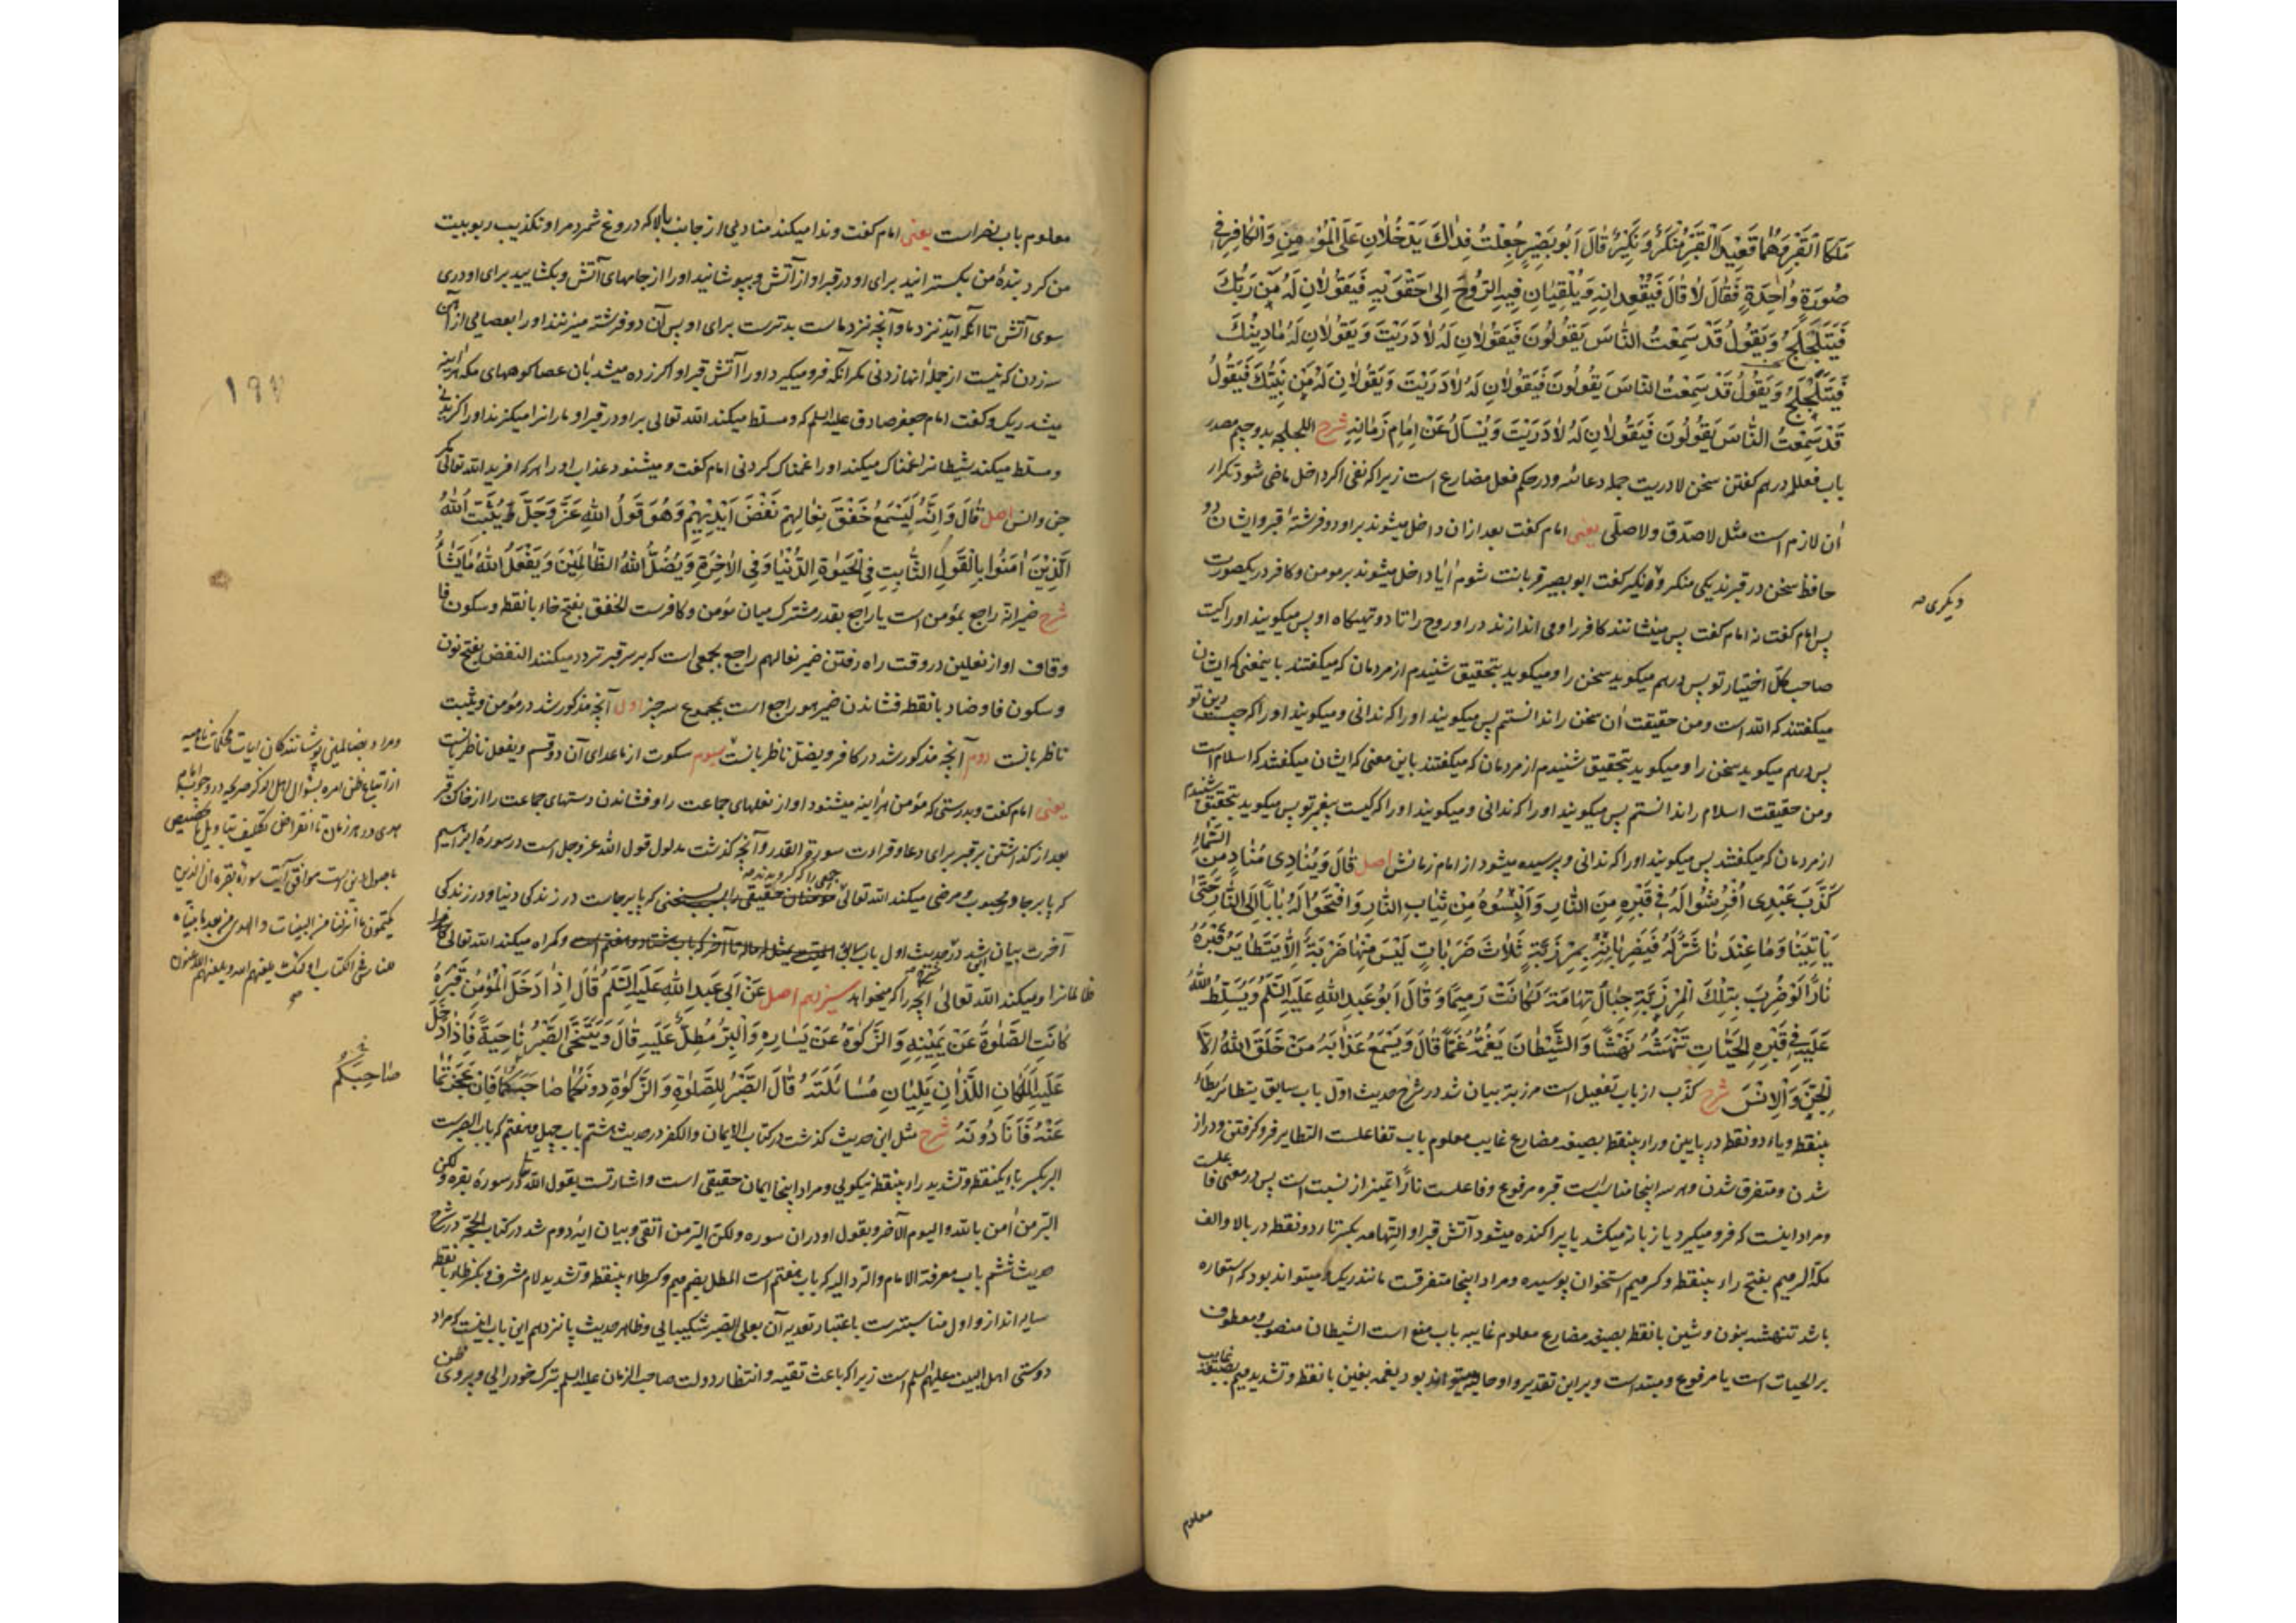 مَلَكَا الْقَبْرِ وَهُمَا قَعِيدَا الْقَبْرِ مُنْكَرٌ وَنَكِيرٌ قَالَ أَبُو بَصِيرٍ جُعِلْتُ فِدَاكَ يَدْخُلَانِ عَلَى الْمُؤْمِنِ وَالْكَافِرِ فِي
صُورَةٍ وَاحِدَةٍ فَقَالَ لَا قَالَ فَيُقْعِدَانِهِ وَيُلْقِيَانِ فِيهِ الرُّوحَ إِلَى حَقْوَيْهِ فَيَقُولَانِ لَهُ مَنْ رَبُّكَ
فَيَتَلَجْلَجُ وَيَقُولُ قَدْ سَمِعْتُ النَّاسَ يَقُولُونَ فَيَقُولَانِ لَهُ لَا دَرَيْتَ وَيَقُولَانِ لَهُ مَا دِينُكَ
فَيَتَلَجْلَجُ وَيَقُولُ قَدْ سَمِعْتُ النَّاسَ يَقُولُونَ فَيَقُولَانِ لَهُ لَا دَرَيْتَ وَيَقُولَانِ لَهُ مَنْ نَبِيُّكَ فَيَقُولُ
قَدْ سَمِعْتُ النَّاسَ يَقُولُونَ فَيَقُولَانِ لَهُ لَا دَرَيْتَ وَيُسْأَلُ عَنْ إِمَامِ زَمَانِهِ شرح اللجلجه بدو جیم مصدر
باب فعلله درهم گفتن سخن لا دریت جمله دعائیه و در حکم فعل مضارع است زیرا که نفی اگر داخل ماضی شود تکرار
آن لازم است مثل لا صدّق ولا صلّی یعنی امام گفت بعد از ان داخل میشوند بر او دو فرشتهٔ قبر و ایشان دو
حافظ سخن در قبرند یکی منکر و نکیر گفت ابو بصیر قربانت شوم آیا داخل میشوند بر مومن و کافر در یکصورت
دیگری صه
پس امام گفت نه امام گفت پس مینشانند کافر را و می اندازند در او روح را تا دو تهیگاه او پس میگویند او را کیست
صاحب کلّ اختیار تو پس درهم میگوید سخن را و میگوید بتحقیق شنیدم از مردمان که میگفتند باینمعنی که ایشان
میگفتند که الله است و من حقیقت آن سخن را ندانستم پس میگویند او را که ندانی و میگویند او را که چیست دین تو
پس درهم میگوید سخن را و میگوید بتحقیق شنیدم از مردمان که میگفتند باین معنی که ایشان میگفتند که اسلام است
و من حقیقت اسلام را ندانستم پس میگویند او را که ندانی و میگویند او را که کیست پیغمبر تو پس میگوید بتحقیق شنیدم
از مردمان که میگفتند پس میگویند او را که ندانی و پرسیده میشود از امام زمانش اصل قَالَ وَيُنَادِي مُنَادٍ مِنَ السَّمَاءِ
كَذَبَ عَبْدِي أُفْرِشُوا لَهُ فِي قَبْرِهِ مِنَ النَّارِ وَأَلْبِسُوهُ مِنْ ثِيَابِ النَّارِ وَافْتَحُوا لَهُ بَابًا إِلَى النَّارِ حَتَّى
يَأْتِيَنَا وَمَا عِنْدَنَا شَرٌّ لَهُ فَيَضْرِبَانِهِ بِمِرْزَبَّةٍ ثَلَاثَ ضَرَبَاتٍ لَيْسَ مِنْهَا ضَرْبَةٌ إِلَّا يَتَطَايَرُ قَبْرُهُ
نَارًا لَوْ ضُرِبَ بِتِلْكَ الْمِرْزَبَّةِ جِبَالُ تِهَامَةَ لَكَانَتْ رَمِيمًا وَقَالَ أَبُو عَبْدِ اللَّهِ عَلَيْهِ السَّلَمُ وَيُسَلِّطُ اللَّهُ
عَلَيْهِ فِي قَبْرِهِ الْحَيَّاتِ تَنْهَشُهُ نَهْشًا وَالشَّيْطَانَ يَغُمُّهُ غَمًّا قَالَ وَيَسْمَعُ عَذَابَهُ مَنْ خَلَقَ اللَّهُ إِلَّا
الْجِنَّ وَالْإِنْسَ شرح کذّب از باب تفعیل است مرزبة بیان شد در شرح حدیث اول باب سابق یتطایر بطاء
بینقطه و یاء دو نقطه در پایین و راء بینقطه بصیغه مضارع غایب معلوم باب تفاعلست التطایر فرو گرفتن و دراز
شدن و متفرق شدن و هر سه اینجا مناسبست قبره مرفوع و فاعلست نارًا تمیز از نسبت است پس در معنی فاعلست
و مراد اینست که فرو میگیرد یا زبانه میکشد یا پراکنده میشود آتش قبر او التهامه بکسر تاء دو نقطه در بالا و الف
مکّة الرمیم بفتح راء بینقطه و کسر میم استخوان پوسیده و مراد اینجا متفرقست مانند ریک و میتواند بود که استعاره
باشد تنهشه بنون و شین بانقطه بصیغه مضارع معلوم غایبه باب منع است الشیطان منصوب و معطوف
بر الحیات است یا مرفوع و مبتداست و بر این تقدیر واو حالیه میتواند بود یغمه بغین بانقطه و تشدید میم بصیغه غایب
معلوم
معلوم باب نصر است یعنی امام گفت و ندا میکند منادیی از جانب بالا که دروغ شمرد مرا و تکذیب ربوبیت
من کرد بندهٔ من بگسترانید برای او در قبر او از آتش و بپوشانید او را از جامهای آتش و بگشایید برای او دری
سوی آتش تا آنکه آید نزد ما و آنچه نزد ماست بدترست برای او پس آن دو فرشته میزنند او را بعصایی از آهن
سه زدن که نیست از جملهٔ آنها زدنی مگر آنکه فرو میگیرد او را آتش قبر او اگر زده میشد بآن عصا کوههای مکه هرآینه
میشد ریک و گفت امام جعفر صادق علیه السلم که و مسلط میکند الله تعالی بر او در قبر او مارانرا میگزند او را گزیدنی
و مسلط میکند شیطانرا غمناک میکند او را غمناک کردنی امام گفت و میشنود عذاب او را هر که آفرید الله تعالی مگر
جن و انس اصل قَالَ وَإِنَّهُ لَيَسْمَعُ خَفْقَ نِعَالِهِمْ نَفْضَ أَيْدِيهِمْ وَهُوَ قَوْلُ اللَّهِ عَزَّ وَجَلَّ يُثَبِّتُ اللَّهُ
الَّذِينَ آمَنُوا بِالْقَوْلِ الثَّابِتِ فِي الْحَيٰوةِ الدُّنْيَا وَفِي الْآخِرَةِ وَيُضِلُّ اللَّهُ الظَّالِمِينَ وَيَفْعَلُ اللَّهُ مَا يَشَاءُ
شرح ضمیر انّه راجع بمؤمن است یا راجع بقدر مشترک میان مؤمن و کافرست الخفق بفتح خاء بانقطه و سکون فا
و قاف آواز نعلین در وقت راه رفتن ضمیر نعالهم راجع بجمعی است که بر سر قبر تردد میکنند النفض بفتح نون
و سکون فا و ضاد بانقطه فشاندن ضمیر هو راجع است بمجموع سه چیز اول آنچه مذکور شد در مؤمن و یثبت
ناظر بآنست دوم آنچه مذکور شد در کافر و یضل ناظر بآنست سیوم سکوت از ماعدای آن دو قسم و یفعل ناظر بآنست
یعنی امام گفت و بدرستی که مؤمن هرآینه میشنود آواز نعلهای جماعت را و فشاندن دستهای جماعت را از خاک قبر
بعد از گذاشتن بر قبر برای دعا و قراءت سورة القدر و آنچه گذشت مدلول قول الله عز و جل است در سورهٔ ابراهیم
که پابرجا و محبوب و مرضی میکند الله تعالی جمعی را که گرویدند مؤمنان حقیقی را بسبب سخنی که پابرجاست در زندگی دنیا و در زندگی
آخرت بیان شد در حدیث اول باب سابق و گمراه میکند الله تعالی
ظالمانرا و میکند الله تعالی آنچه را که میخواهد سیزدهم اصل عَنْ أَبِي عَبْدِ اللَّهِ عَلَيْهِ السَّلَمُ قَالَ إِذَا دَخَلَ الْمُؤْمِنُ قَبْرَهُ
كَانَتِ الصَّلٰوةُ عَنْ يَمِينِهِ وَالزَّكٰوةُ عَنْ يَسَارِهِ وَالْبِرُّ مُطِلٌّ عَلَيْهِ قَالَ وَيَتَنَحَّى الصَّبْرُ نَاحِيَةً فَإِذَا دَخَلَ
عَلَيْهِ الْمَلَكَانِ اللَّذَانِ يَلِيَانِ مُسَائَلَتَهُ قَالَ الصَّبْرُ لِلصَّلٰوةِ وَالزَّكٰوةِ دُونَكُمَا صَاحِبَكُمَا فَإِنْ عَجَزْتُمَا
عَنْهُ فَأَنَا دُونَهُ شرح مثل این حدیث گذشت در کتاب الایمان و الکفر در حدیث هشتم باب چهل و هفتم که باب الصبرست
البر بکسر باء یکنقطه و تشدید راء بینقطه نیکویی و مراد اینجا ایمان حقیقی است و اشارتست بقول الله تعالی در سورهٔ بقره ولکن
البّر من آمن بالله والیوم الآخر و بقول او در ان سوره ولکن البّر من اتقی و بیان آیهٔ دوم شد در کتاب الحجّة در شرح
حدیث ششم باب معرفة الامام والردّ الیه که باب هفتم است المطل بضم میم و کسر طاء بینقطه و تشدید لام مشرف و بکسر ظاء بانقطه
سایه انداز و اول مناسبترست باعتبار تعدیه آن بعلی الصبر شکیبایی و ظاهر حدیث پانزدهم این باب اینست که مراد
دوستی اهل البیت علیهم السلم است زیرا که باعث تقیه و انتظار دولت صاحب الزمان علیه السلم بترک خودرایی و پیروی ظن
ومراد بظالمین پوشانندگان آیات محکمات ناهیه
از اتباع ظن آمره بسؤال اهل الذکر
هدی در هر زمان تا انقراض تکلیف بتأویل یا تخصیص
موافق آیت سورهٔ بقره ان الذین
یکتمون ما انزلنا من البینات والهدی من بعد ما بیّناه
للناس فی الکتاب اولئک یلعنهم الله ویلعنهم اللاعنون
صَاحِبَكُمْ